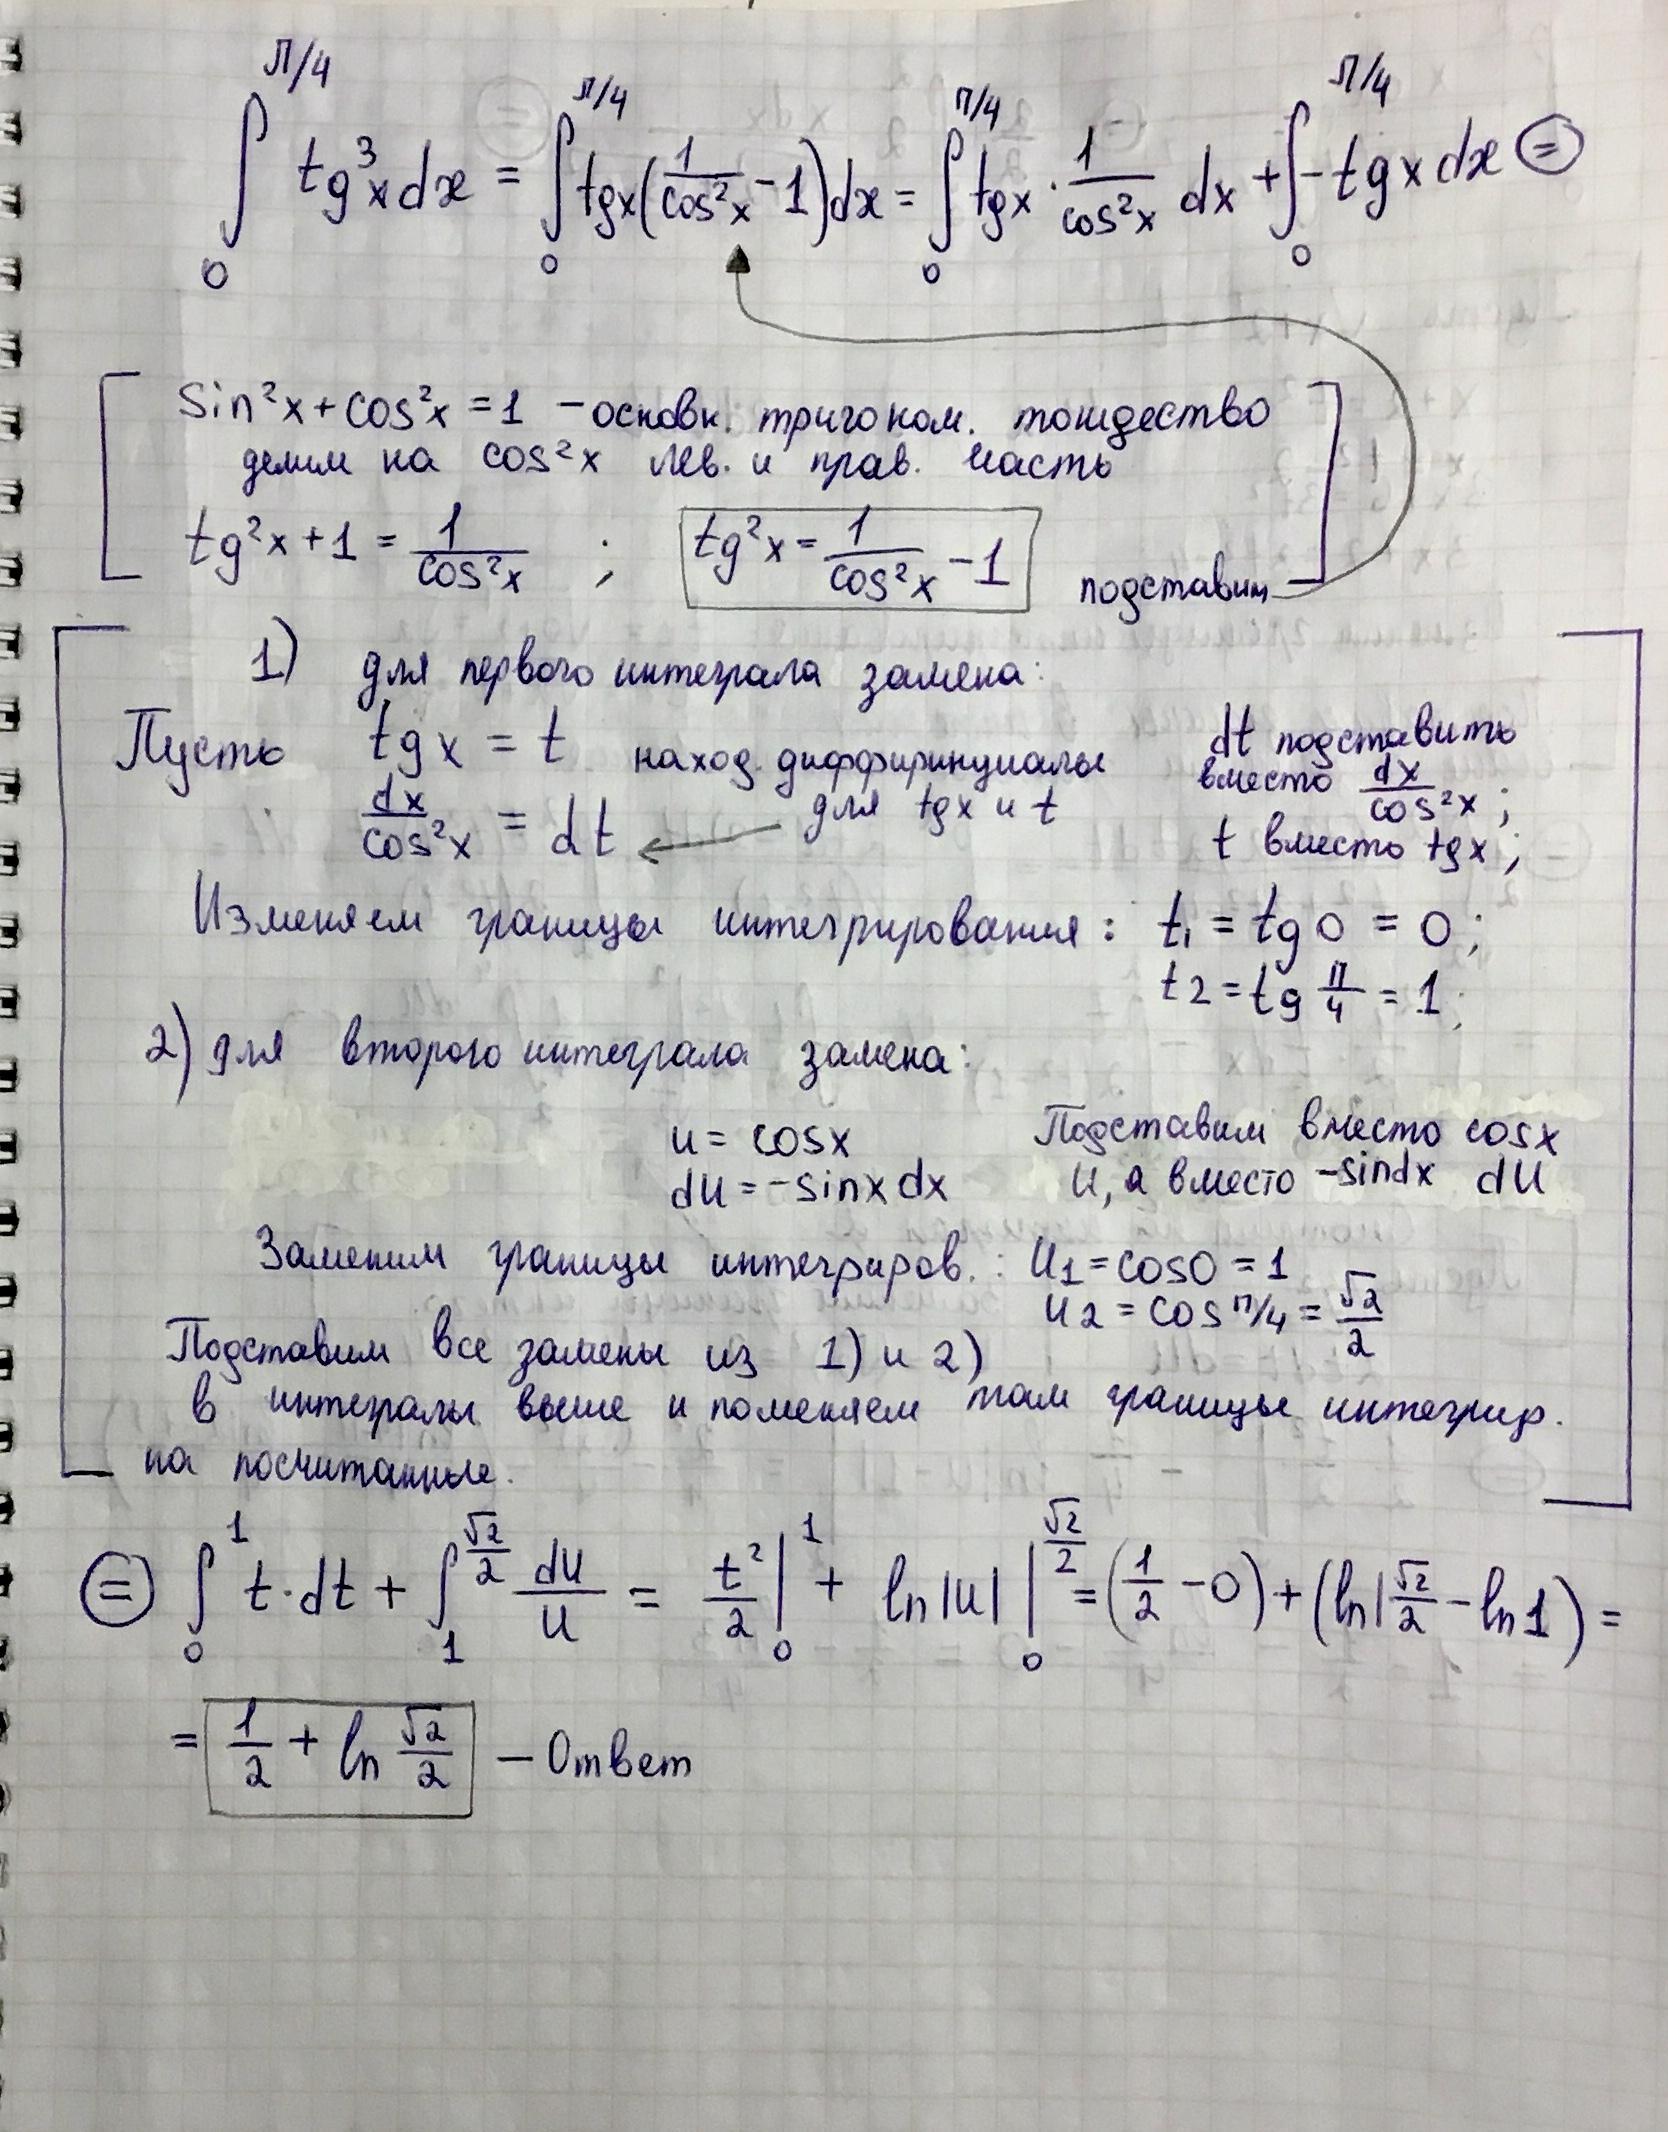 ∫₀^{π/4} tg³x dx = ∫₀^{π/4} tgx(1/cos²x − 1)dx = ∫₀^{π/4} tgx · 1/cos²x dx + ∫₀^{π/4} −tgx dx ⊜
sin²x + cos²x = 1 – основн. тригоном. тождество
делим на cos²x лев. и прав. часть
tg²x + 1 = 1/cos²x ; tg²x = 1/cos²x − 1 подставим
1) для первого интеграла замена:
Пусть tgx = t наход. диффиринциалы для tgx и t
dx/cos²x = dt
dt подставить
вместо dx/cos²x ;
t вместо tgx ;
Изменяем границы интегрирования : t₁ = tg0 = 0 ;
t2 = tg π/4 = 1 ;
2) для второго интеграла замена:
u = cosx
du = −sinx dx
Подставим вместо cosx
u, а вместо −sindx du
Заменим границы интегриров. : u1 = cos0 = 1
u2 = cos π/4 = √2/2
Подставим все замены из 1) и 2)
в интегралы выше и поменяем там границы интегрир.
на посчитанные.
⊜ ∫₀¹ t·dt + ∫₁^{√2/2} du/u = t²/2 |₀¹ + ln|u| |₀^{√2/2} = (1/2 − 0) + (ln|√2/2 − ln1) =
= 1/2 + ln √2/2 – Ответ